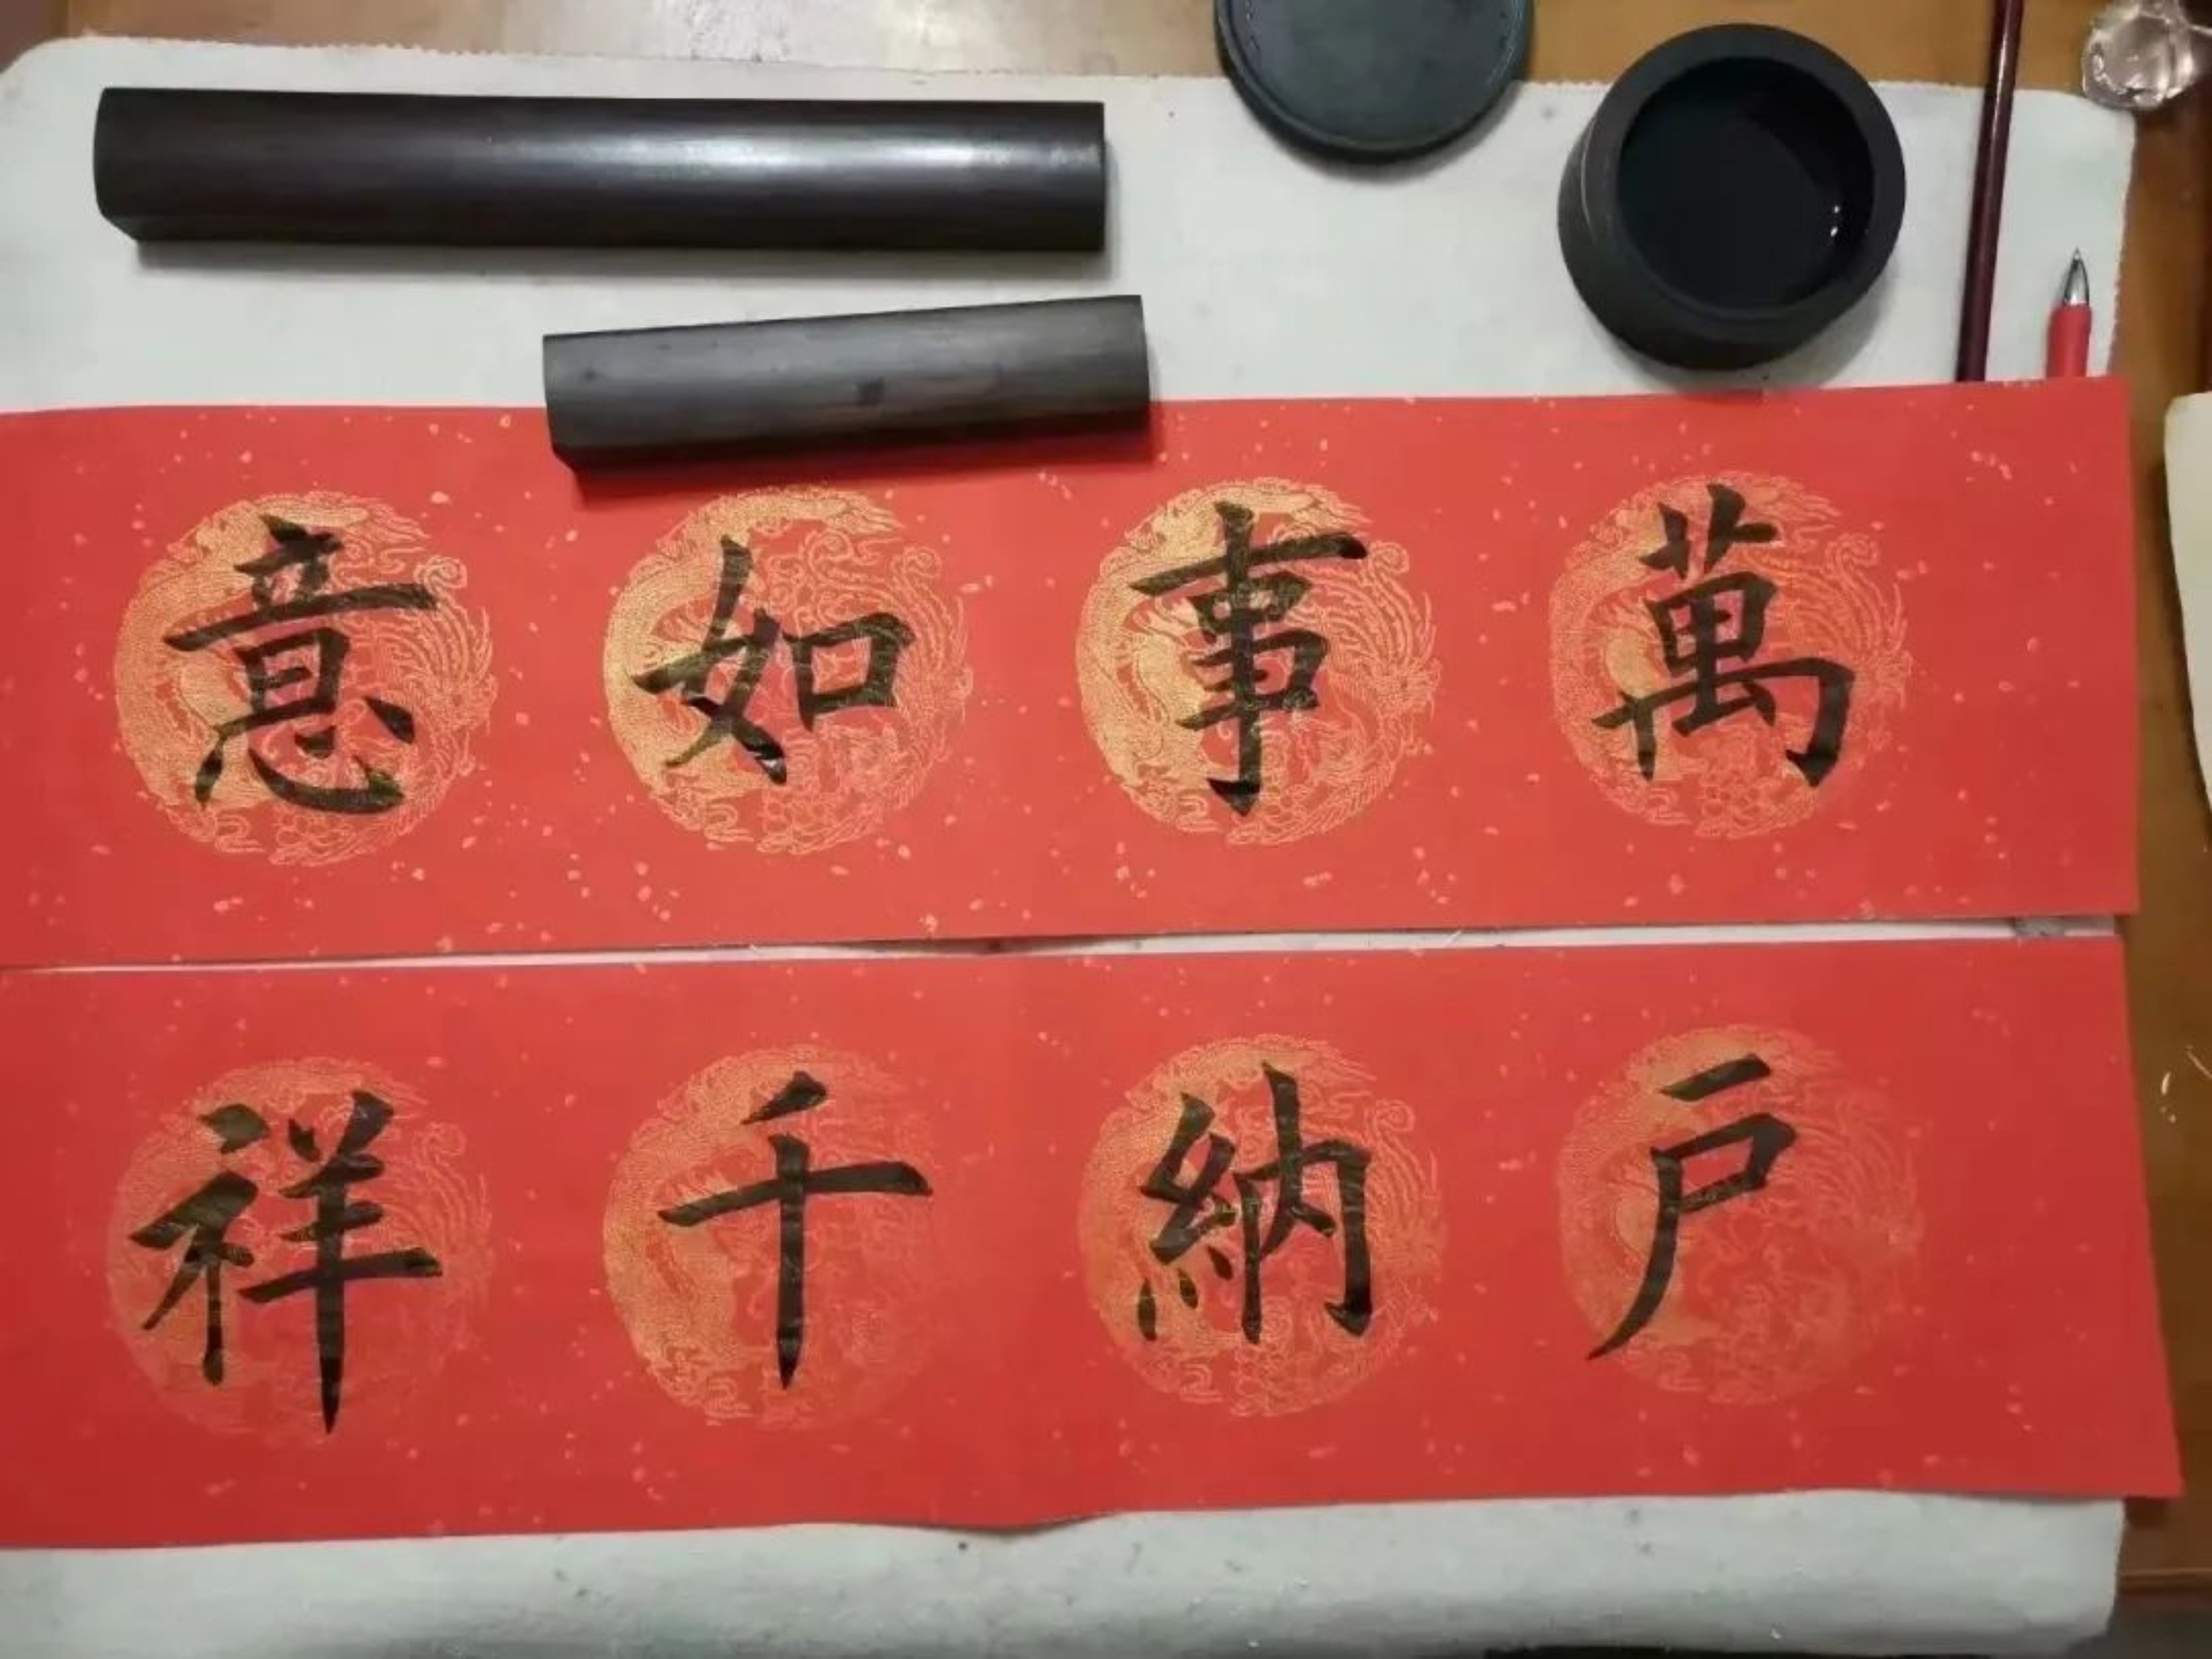 萬事如意
戶納千祥